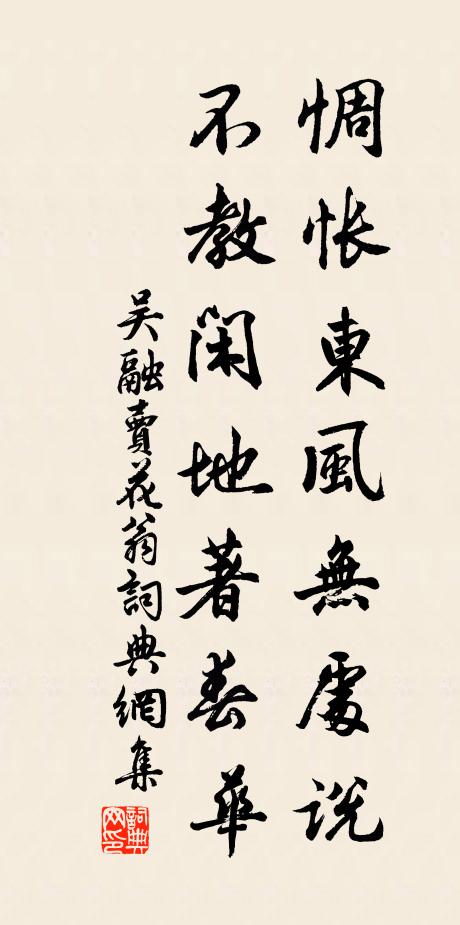 惆悵東風無處說
不教閑地著春華
吳融賣花翁詞典網集
詞典網印